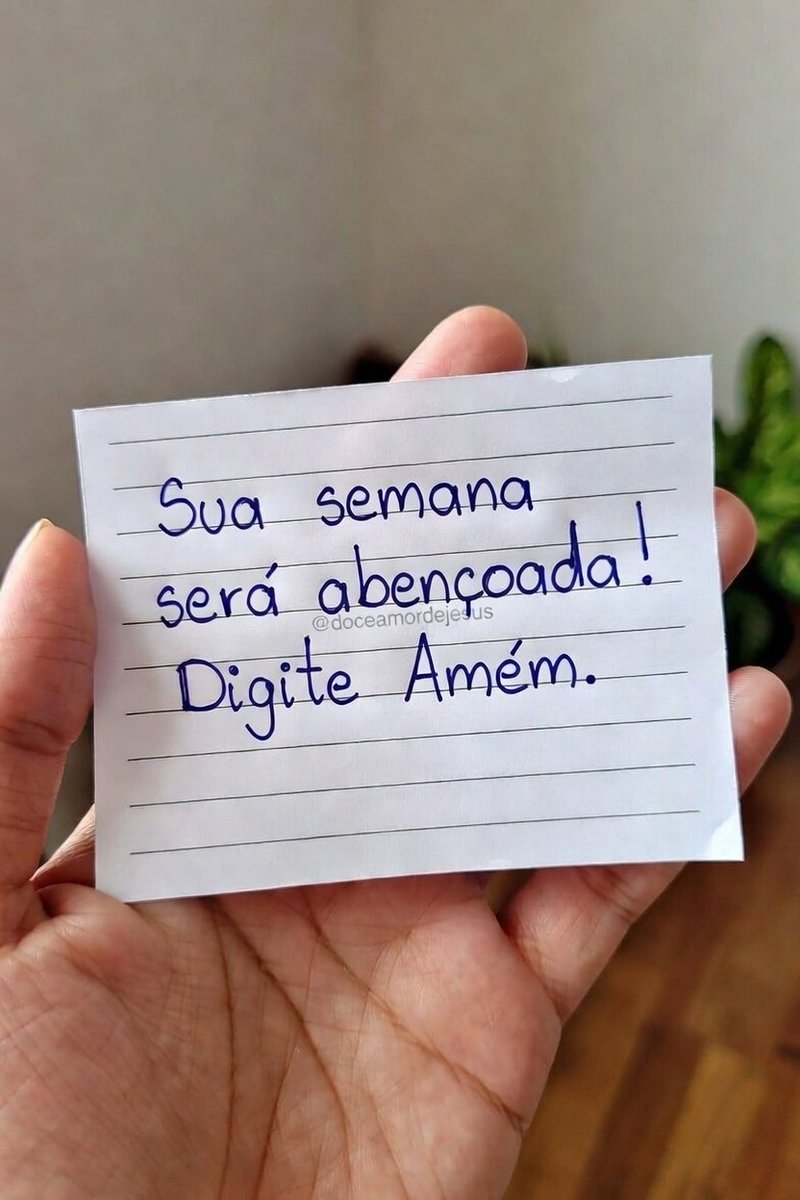 Sua semana
será abençoada!
@doceamordejesus
Digite Amém.